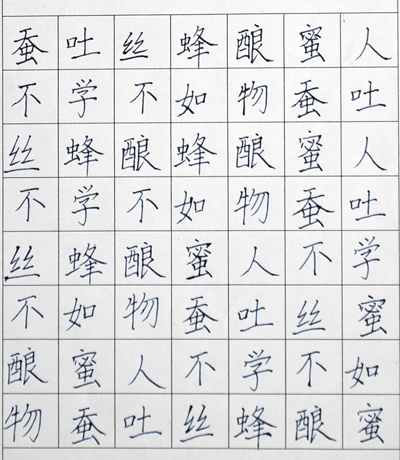 蚕吐丝蜂酿蜜人
不学不如物蚕吐
丝蜂酿蜂酿蜜人
不学不如物蚕吐
丝蜂酿蜜人不学
不如物蚕吐丝蜜
酿蜜人不学不如
物蚕吐丝蜂酿蜜